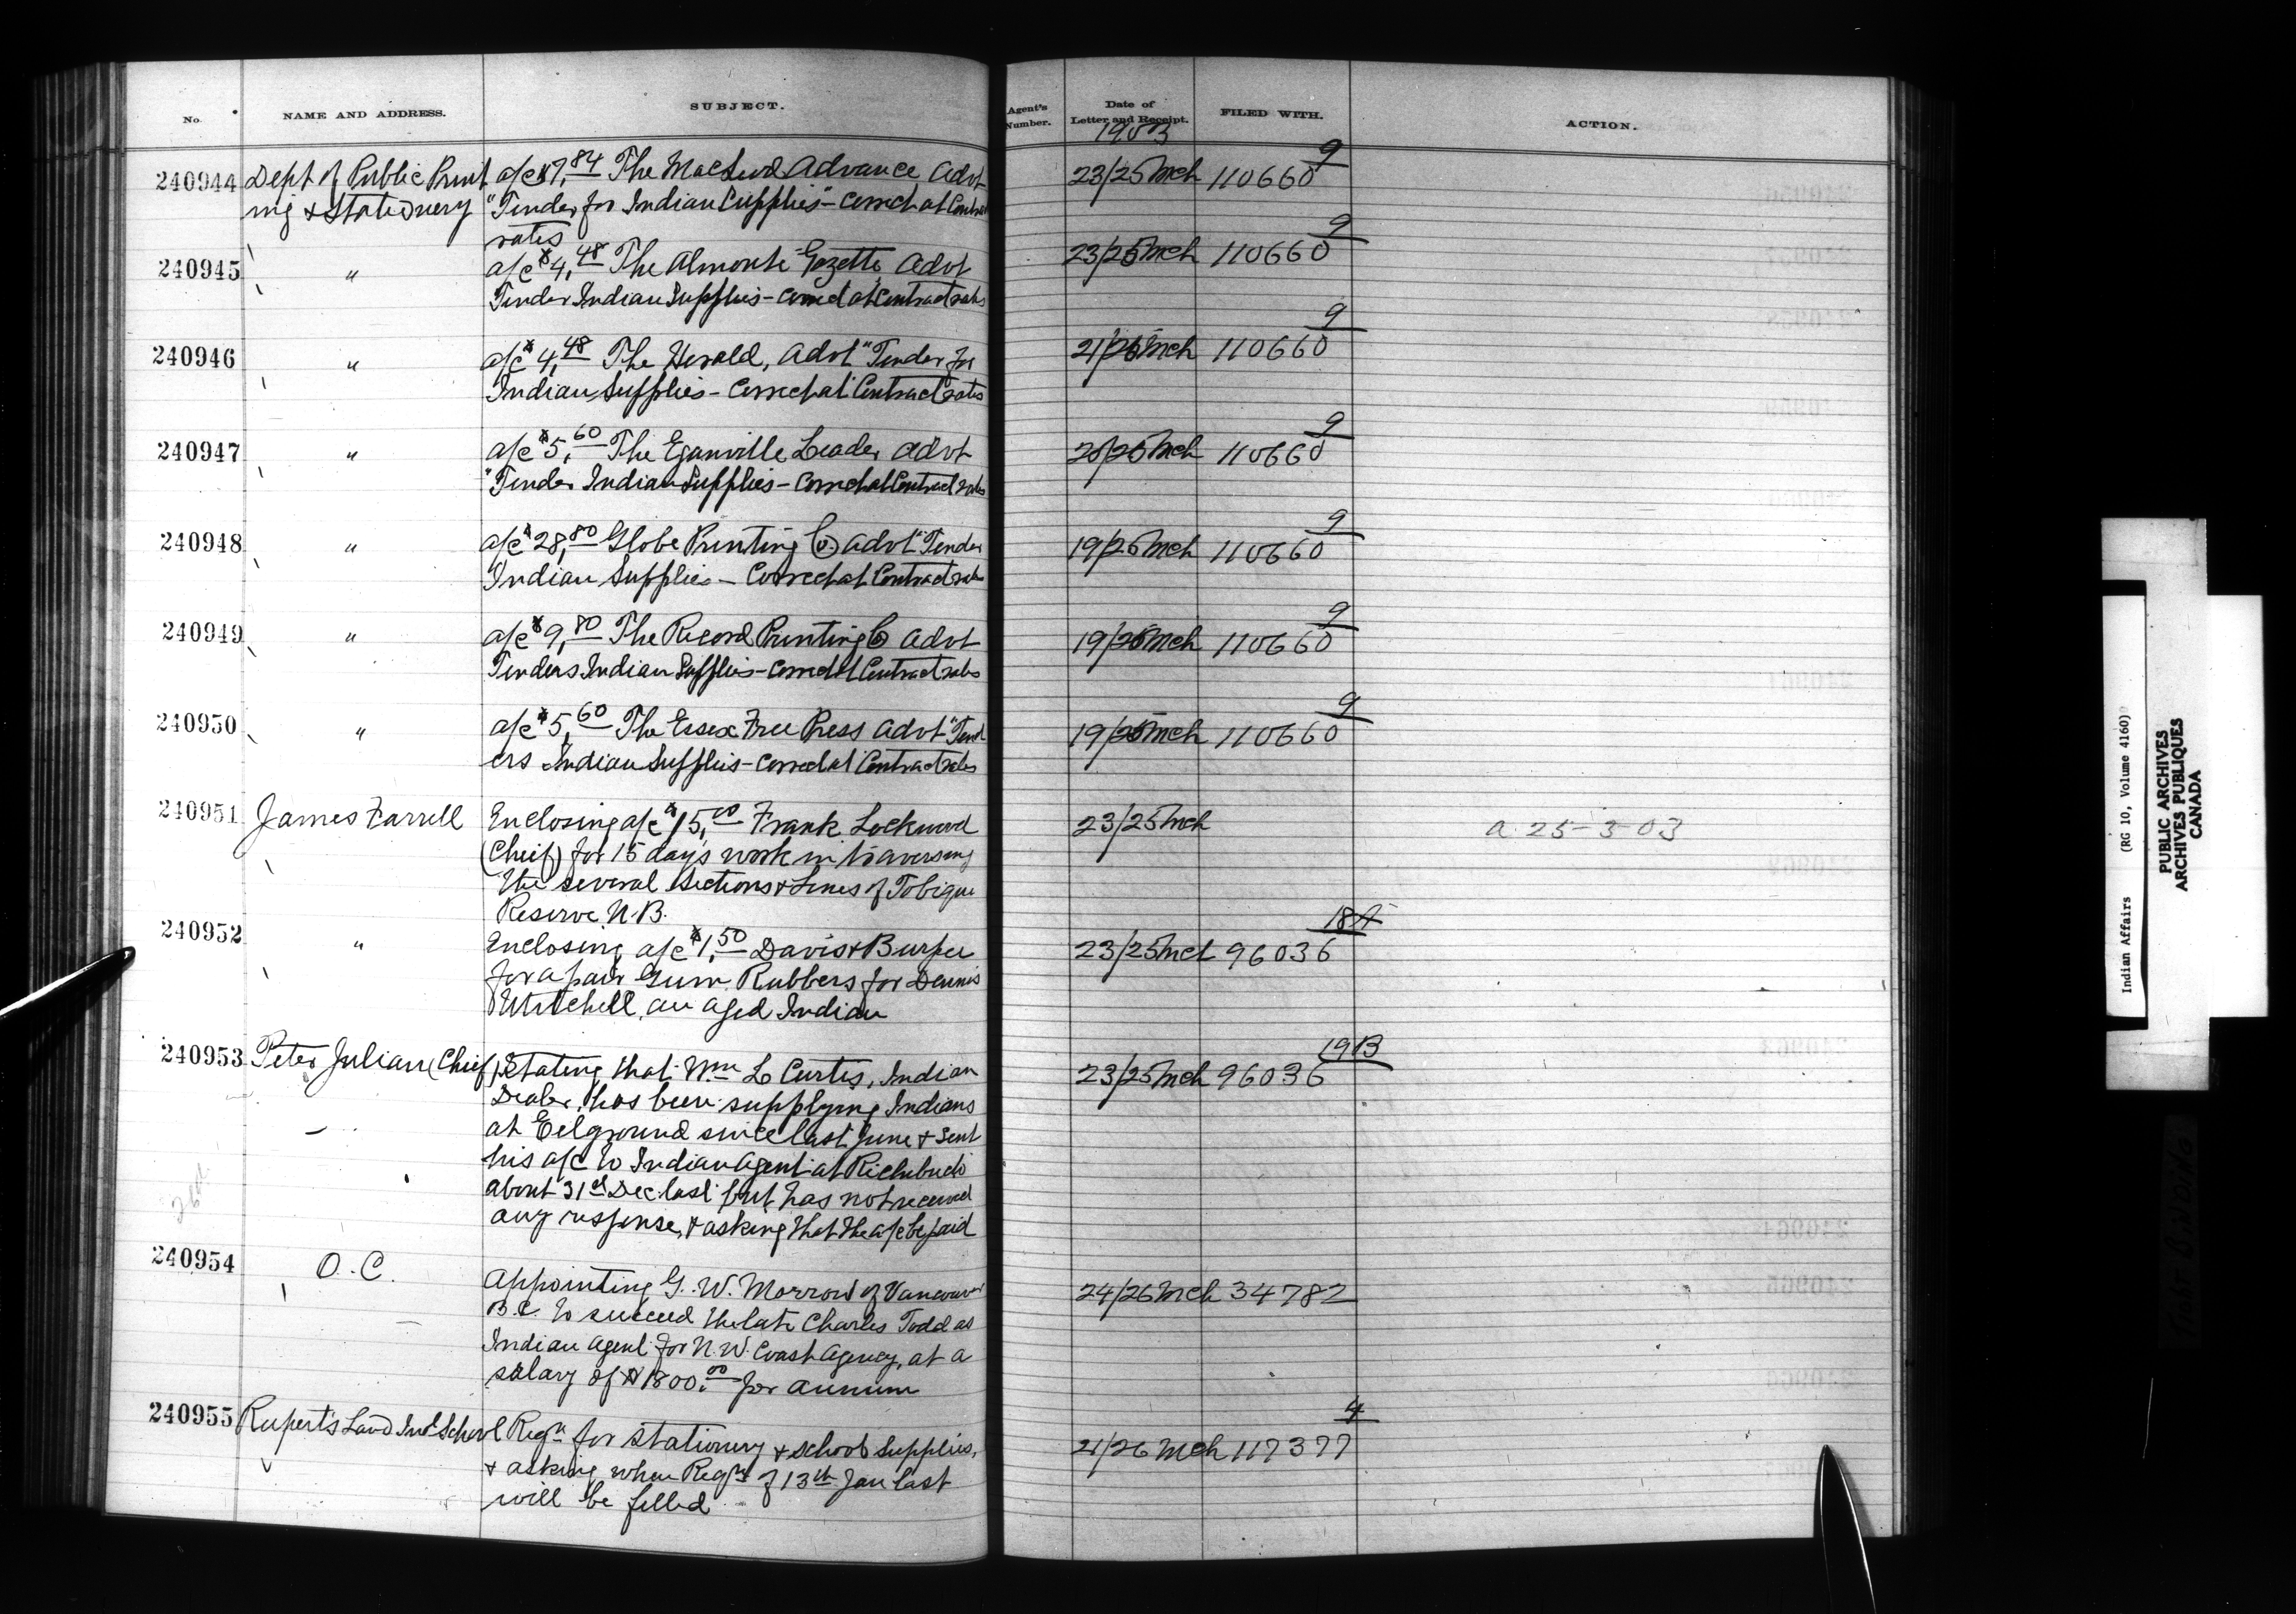 No. NAME AND ADDRESS. SUBJECT. Agent's Number. Date of Letter and Receipt. FILED WITH. ACTION.
1903
240944 Dept of Public Print a/c $7,84 The Macleod Advance Advt 23/25 Mch 110660 9
ing & Stationery "Tender for Indian Supplies" - Correct at Contract
rates
240945 " a/c $4,48 The Almonte Gazette, Advt 23/25 Mch 110660 9
Tender Indian Supplies - Correct at Contract rates
240946 " a/c $4,48 The Herald, Advt "Tender for 21/25 Mch 110660 9
Indian Supplies - Correct at Contract rates
240947 " a/c $5,60 The Eganville Leader Advt 25 Mch 110660 9
"Tender Indian Supplies - Correct at Contract rates
240948 " a/c $28,80 Globe Printing Co. Advt "Tender 19/25 Mch 110660 9
Indian Supplies - Correct at Contract rates
240949 " a/c $9,80 The Record Printing Co Advt 19/25 Mch 110660 9
Tenders Indian Supplies - Correct at Contract rates
240950 " a/c $5,60 The Essex Free Press Advt "Tend 19/25 Mch 110660 9
ers Indian Supplies - Correct at Contract rates
240951 James Farrell Enclosing a/c $15,00 Frank Lockwood 23/25 Mch a 25-3-03
(Chief) for 15 days work in traversing
the several sections & Lines of Tobique
Reserve N.B.
240952 " Enclosing a/c $1,50 Davis & Burpee 23/25 Mch 96036 18A
for a pair Gum Rubbers for Dennis
Mitchell, an aged Indian
240953 Peter Julian (Chief) Stating that Wm L Curtis, Indian 23/25 Mch 96036 19B
Dealer, has been supplying Indians
at Eelground since last June & sent
his a/c to Indian Agent at Richibucto
about 31st Dec last but has not received
any response, & asking that the a/c be paid
240954 O.C. Appointing G. W. Morrow of Vancouver 24/26 Mch 34782
B.C. to succeed the late Charles Todd as
Indian Agent for N.W. Coast Agency, at a
salary of $1800.00 per annum
240955 Rupert's Land Indl School Reqn for stationery & school supplies, 21/26 Mch 117377 4
& asking when Reqn of 13th Jan last
will be filled
Indian Affairs (RG 10, Volume 4160)
PUBLIC ARCHIVES
ARCHIVES PUBLIQUES
CANADA